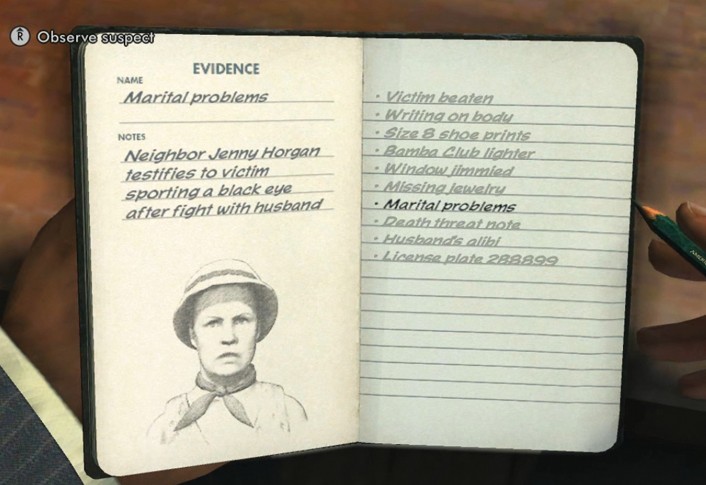 R Observe suspect
EVIDENCE
NAME
Marital problems
NOTES
Neighbor Jenny Horgan
testifies to victim
sporting a black eye
after fight with husband
• Victim beaten
• Writing on body
• Size 8 shoe prints
• Bamba Club lighter
• Window jimmied
• Missing jewelry
• Marital problems
• Death threat note
• Husband's alibi
• License plate 288899